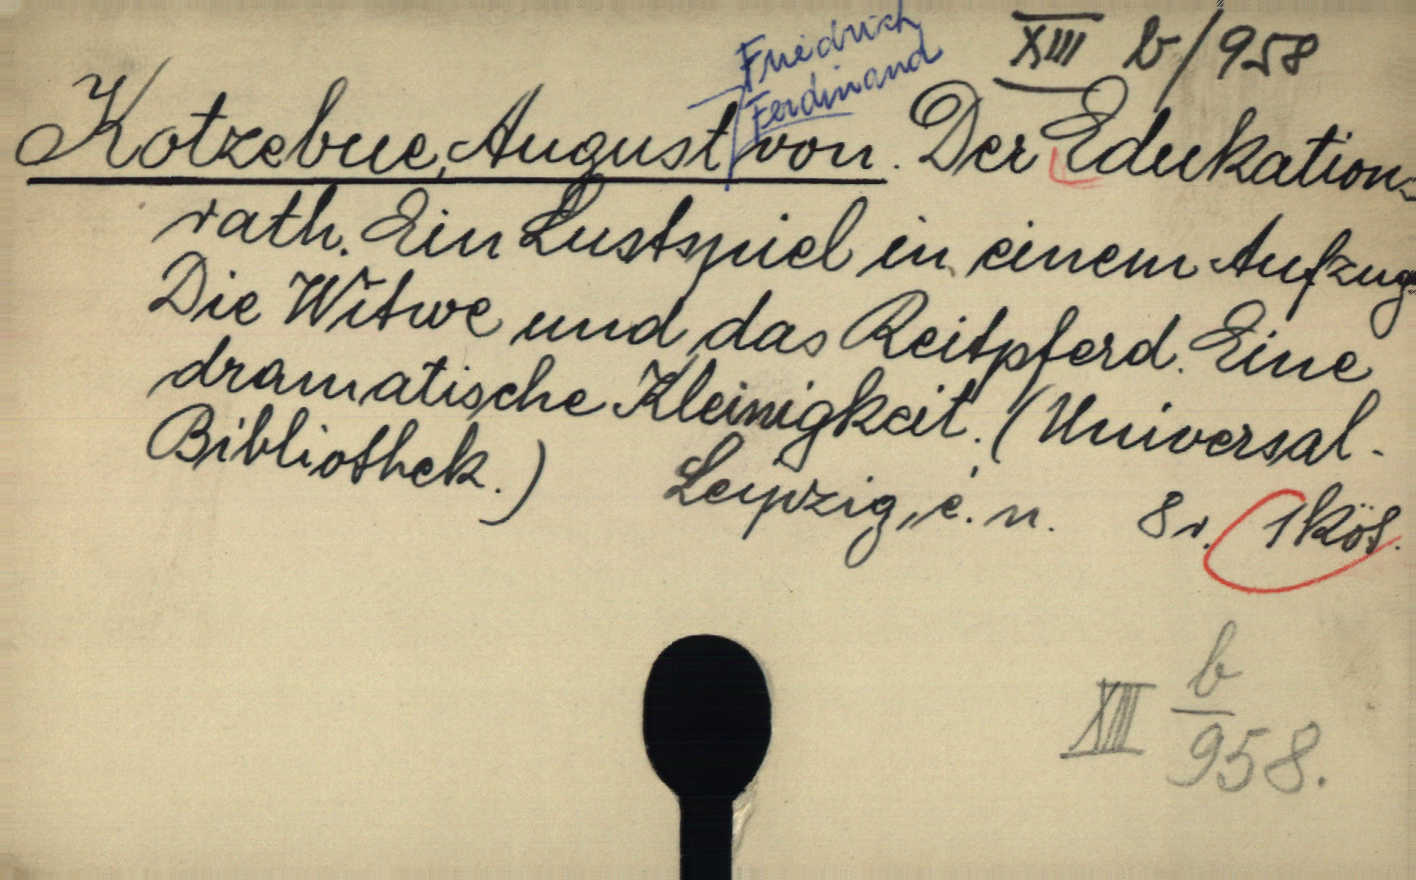 XIII b/958
Friedrich
Ferdinand
Kotzebue, August von. Der Edukations
rath. Ein Lustspiel in einem Aufzug.
Die Witwe und das Reitpferd. Eine
dramatische Kleinigkeit. (Universal-
Bibliothek.) Leipzig, é. n. 8r. 1 köt.
XIII b
958.